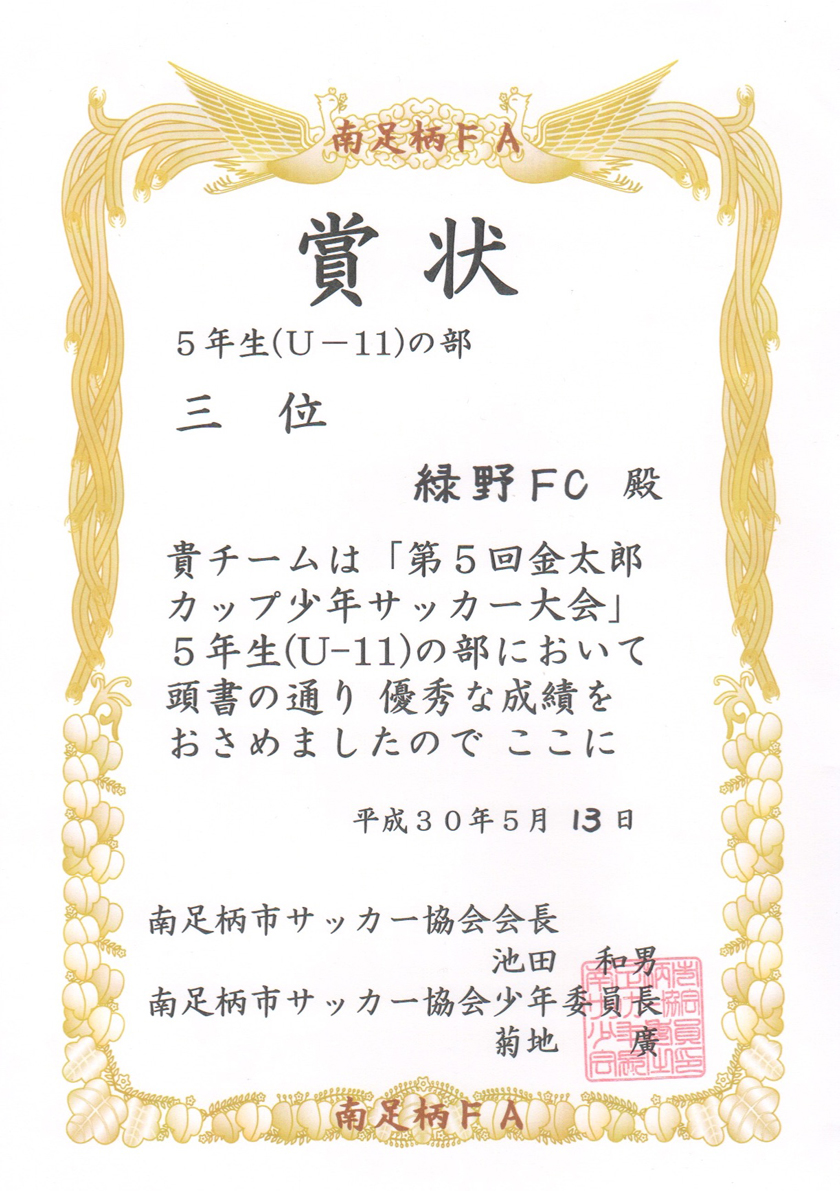 南足柄ＦＡ
賞状
５年生(Ｕ－11)の部
三　位
緑野ＦＣ 殿
貴チームは「第５回金太郎
カップ少年サッカー大会」
５年生(U-11)の部において
頭書の通り 優秀な成績を
おさめましたので ここに
平成３０年５月 13 日
南足柄市サッカー協会会長
池田　和男
南足柄市サッカー協会少年委員長
菊地　廣
南足柄ＦＡ